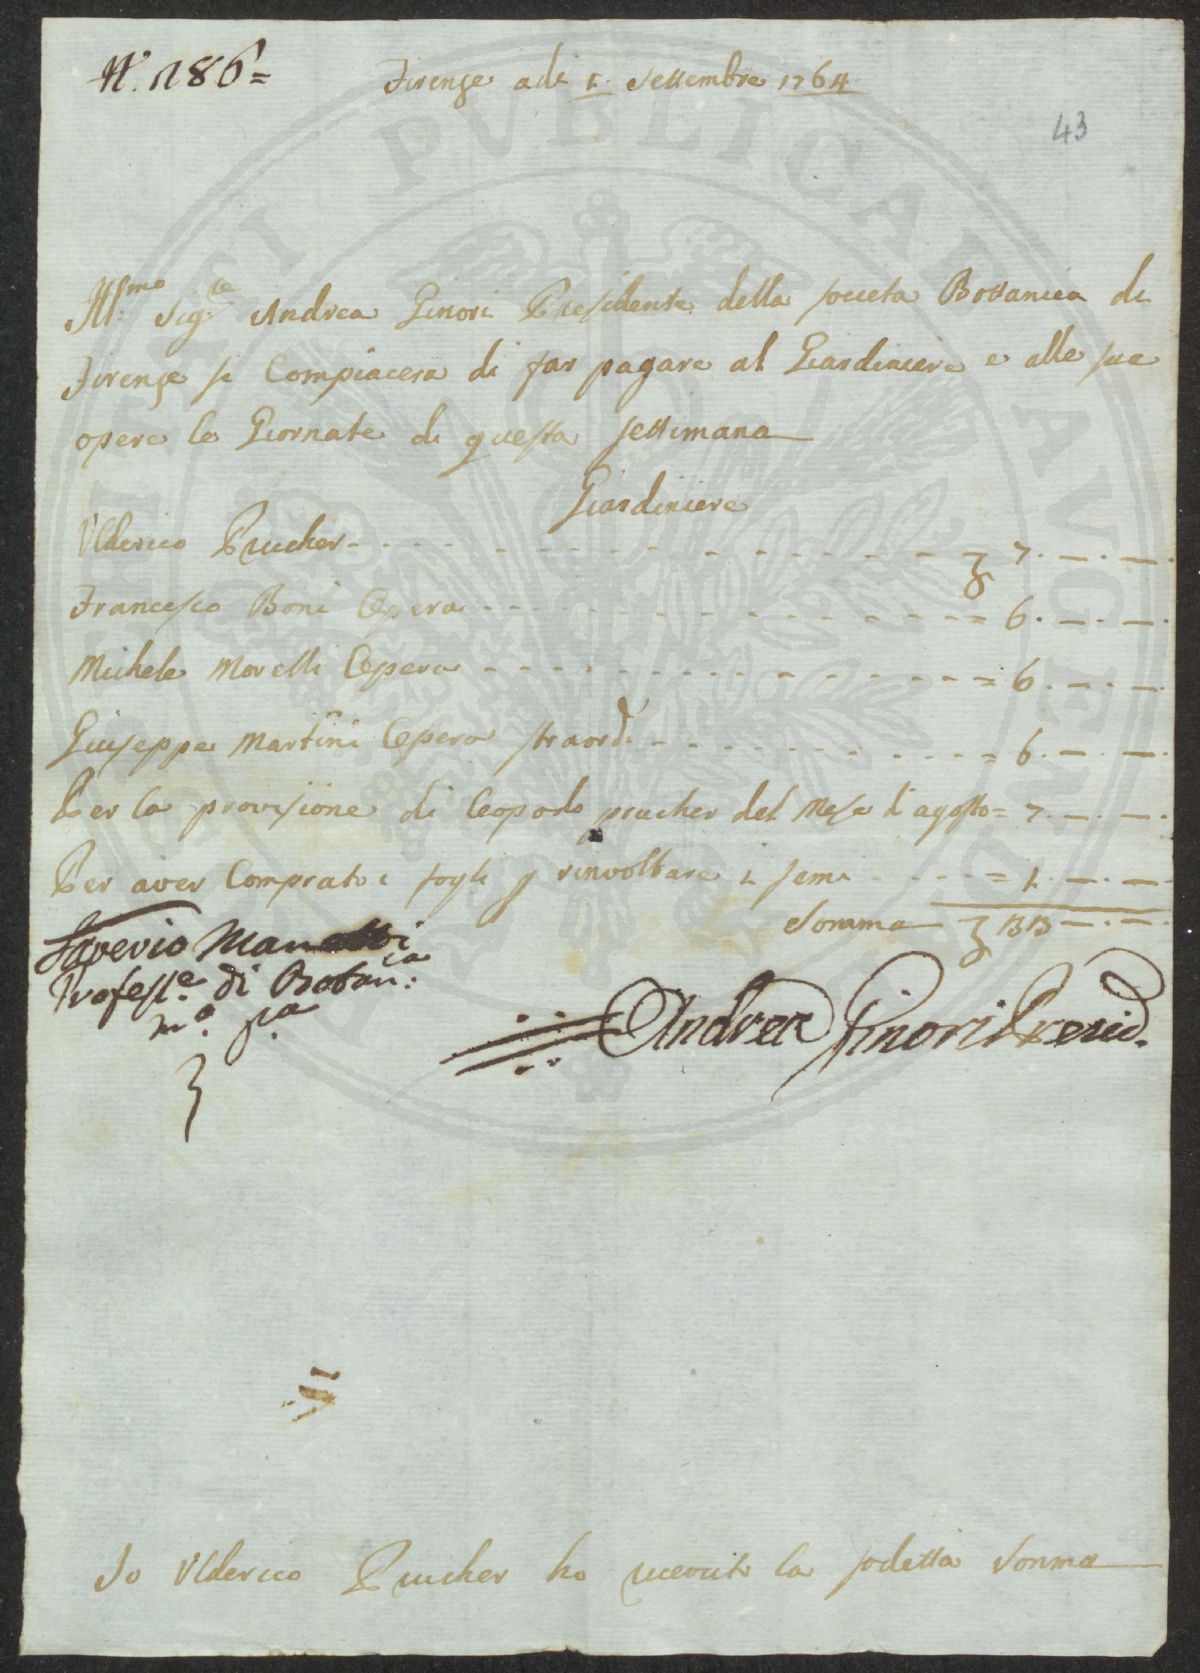 N. 186=
Firenze adi 1. Settembre 1764.
43
Ill.mo Sig.re Andrea Ginori Presidente della società Bottanica di
Firenze si Compiacera di far pagare al Giardiniere e alle sue
opere le Giornate di questa settimana
Giardiniere
Vlderico Prucher - - - - 7. — . — .
Francesco Boni Opera - - - - = 6. — . — .
Michele Morelli Opera - - - - = 6. — . — .
Giuseppe Martini Opera straord. - - - - = 6. — . — .
Per la provisione di leopodo prucher del Mese d'agosto = 7. — . — .
Per aver Comprato i fogli p rinvoltare i semi - - - - = 1. — . — .
Somma 33 — . — .
Saverio Manetti
Profess.e di Botan.ca
m.o p.a
Andrea Ginori Presid.
Io Vlderico Prucher ho riceuto la sodetta Somma